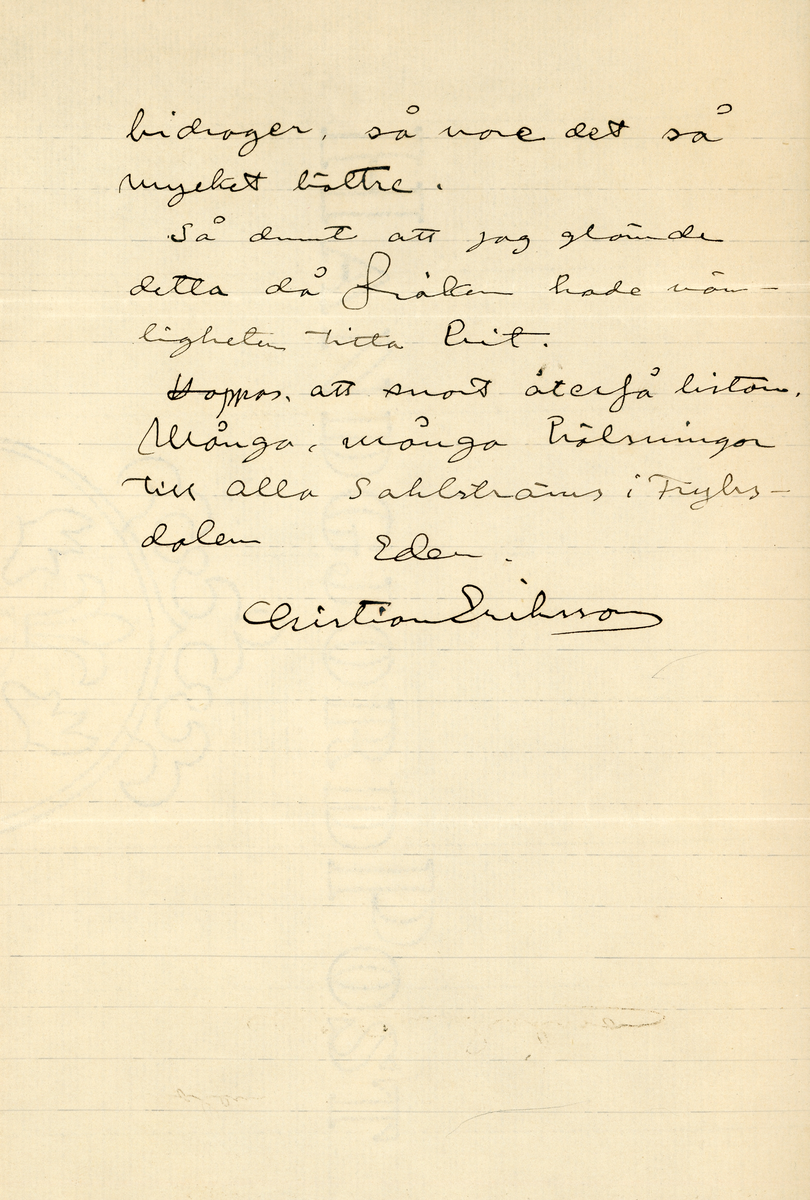 bidrager, så vore det så
mycket bättre.
Så dumt att jag glömde
detta då fröken hade vän-
ligheten titta hit.
Hoppas, att snart återfå listan.
Många, många hälsningar
till alla Sahlströms i Fryks-
dalen Eder.
Christian Eriksson